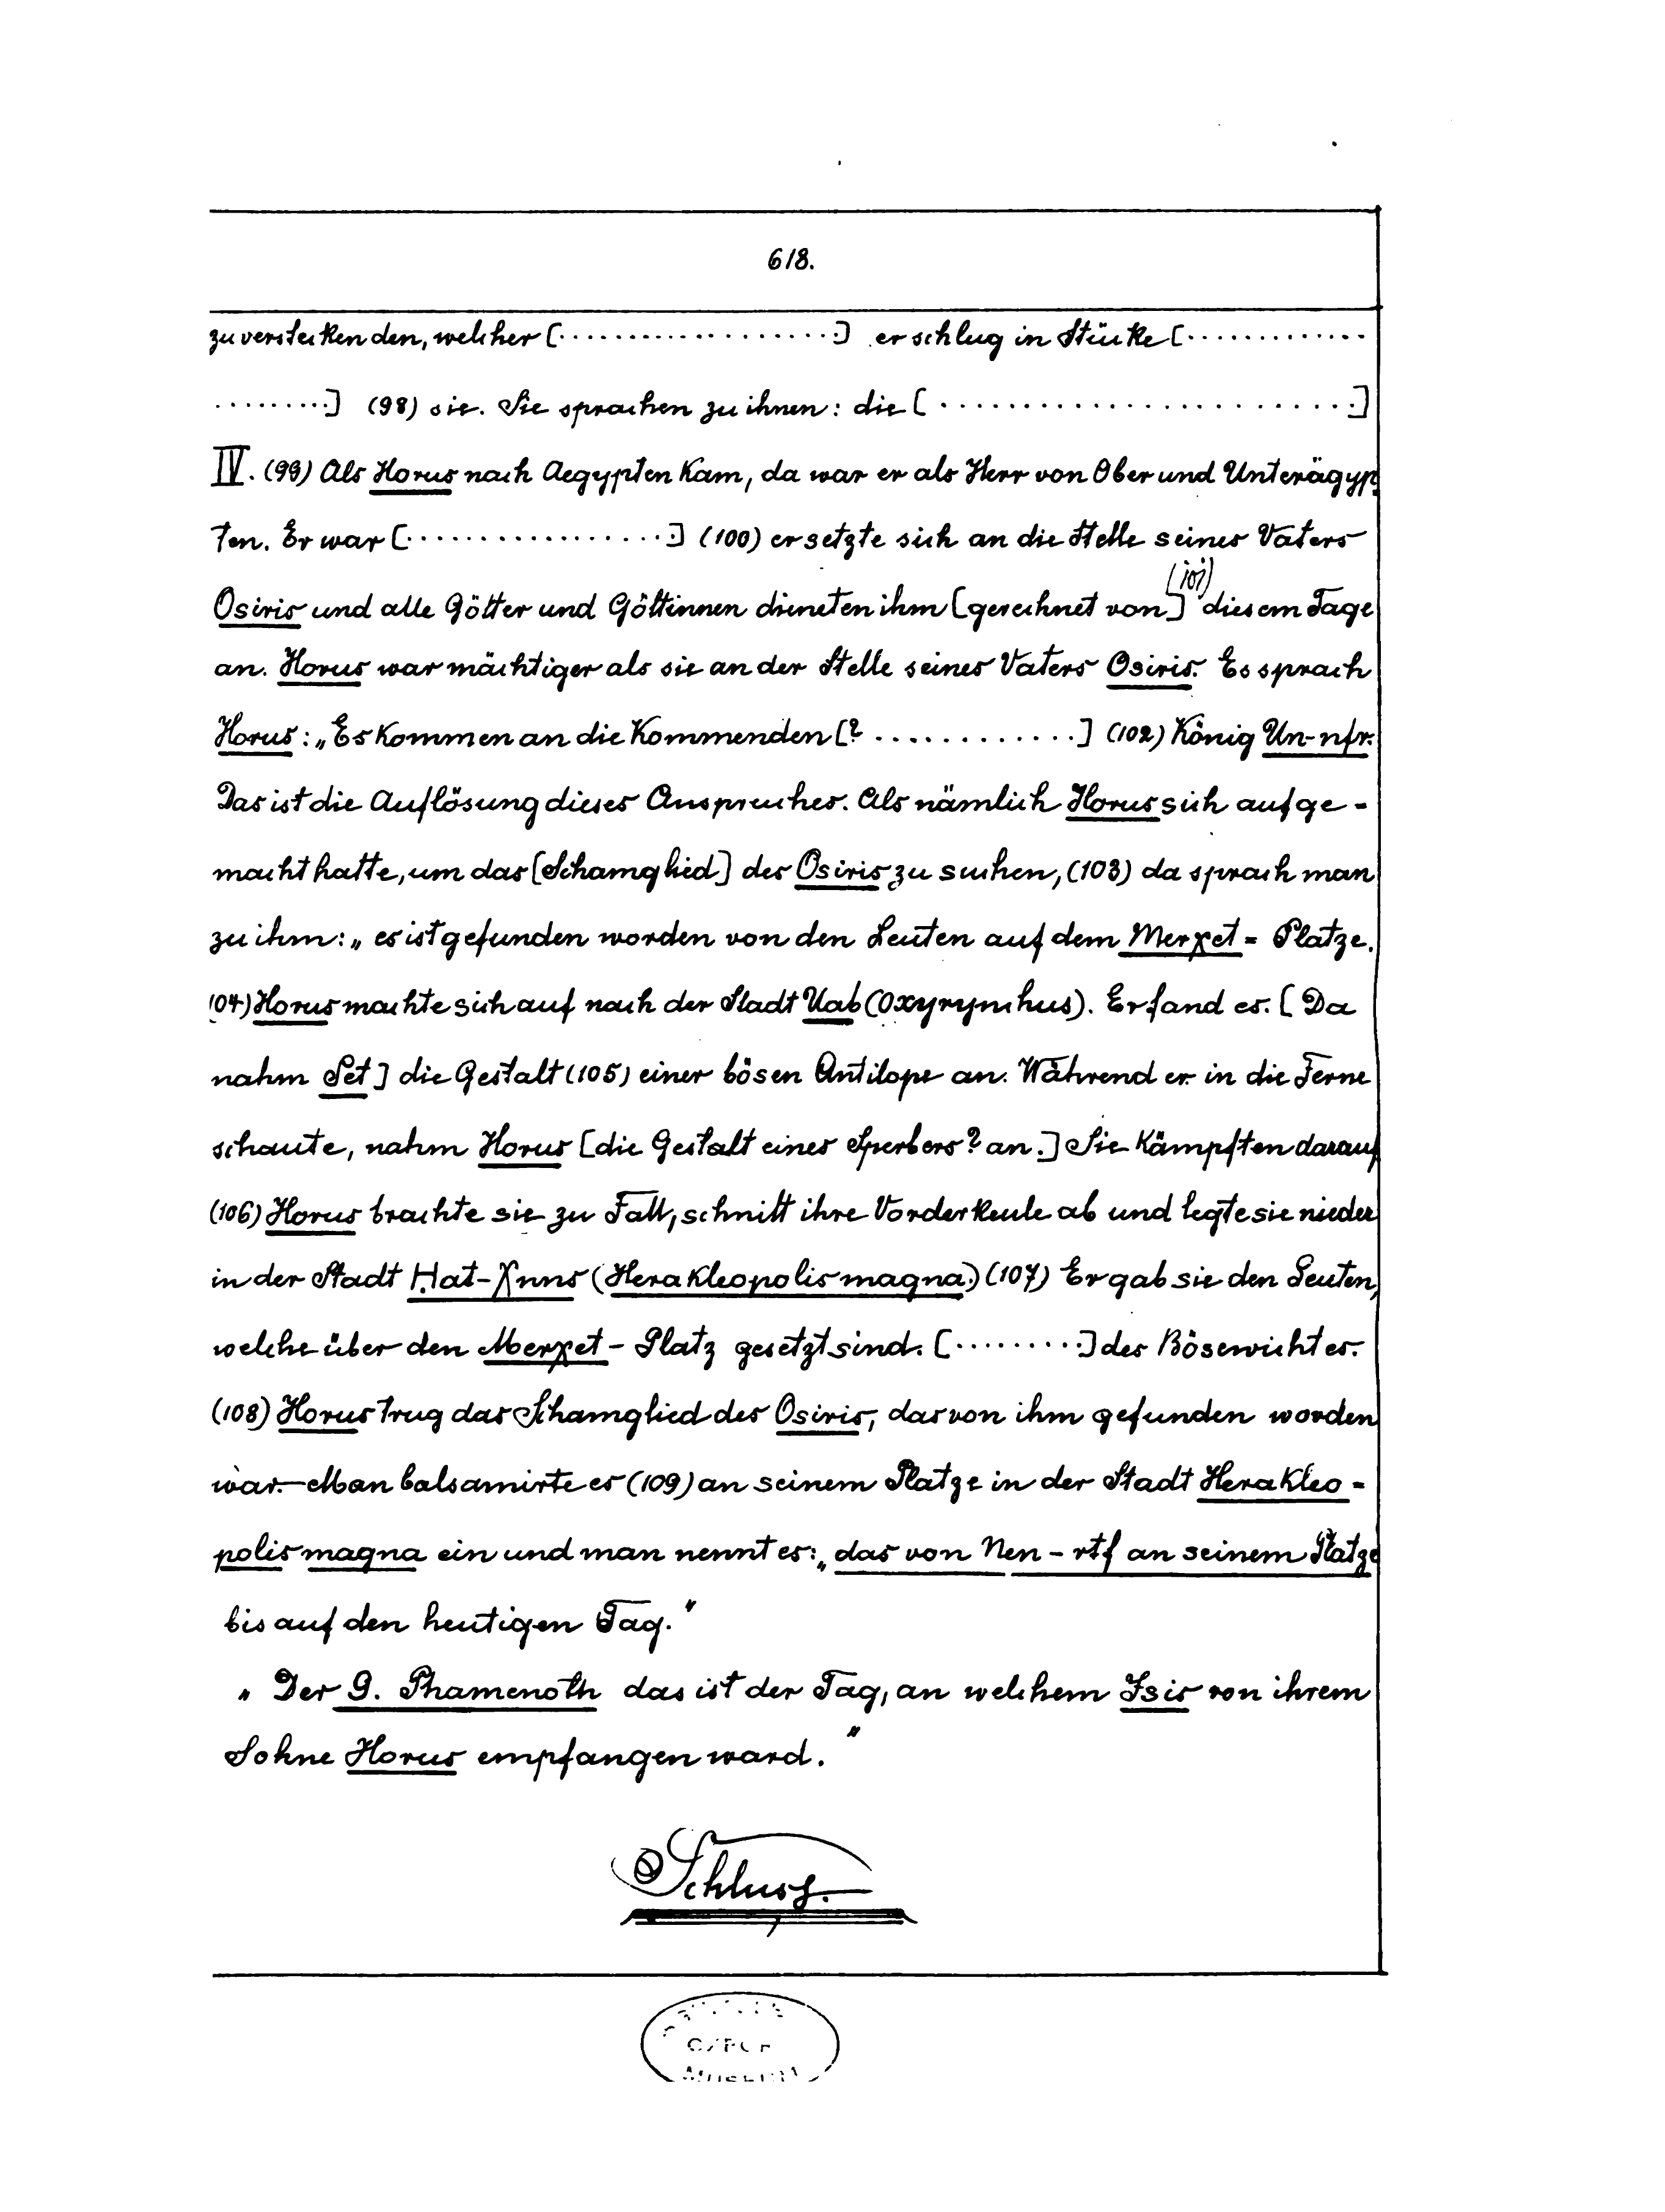 618.
zu versteckenden, welcher [····················] er schlug in Stücke [·············
·········] (98) sie. Sie sprachen zu ihnen: die [··························]
IV. (99) Als Horus nach Aegypten kam, da war er als Herr von Ober und Unterägyp-
ten. Er war [···················] (100) er setzte sich an die Stelle seines Vaters
(101)
Osiris und alle Götter und Göttinnen dieneten ihm [gerechnet von] diesem Tage
an. Horus war mächtiger als sie an der Stelle seines Vaters Osiris. Es sprach
Horus: „Es kommen an die Kommenden [? ·············] (102) König Un-nfr.
Das ist die Auflösung dieses Anspruches. Als nämlich Horus sich aufge-
macht hatte, um das [Schamglied] des Osiris zu suchen, (103) da sprach man
zu ihm: „es ist gefunden worden von den Leuten auf dem Merχet = Platze.
(104) Horus machte sich auf nach der Stadt Uab (Oxyrynchus). Er fand es. [Da
nahm Set] die Gestalt (105) einer bösen Antilope an. Während er in die Ferne
schaute, nahm Horus [die Gestalt eines Sperbers? an.] Sie kämpften darauf
(106) Horus brachte sie zu Fall, schnitt ihre Vorderkeule ab und legte sie nieder
in der Stadt Hat-χnns (Herakleopolis magna.) (107) Er gab sie den Leuten,
welche über den Merχet - Platz gesetzt sind. [·········] des Bösewichtes.
(108) Horus trug das Schamglied des Osiris, das von ihm gefunden worden
war. — Man balsamirte es (109) an seinem Platze in der Stadt Herakleo-
polis magna ein und man nennt es: „das von Nen - rtf an seinem Platze“
bis auf den heutigen Tag.“
„Der 9. Phamenoth das ist der Tag, an welchem Isis von ihrem
Sohne Horus empfangen ward.“
Schluss.
MUSEUM